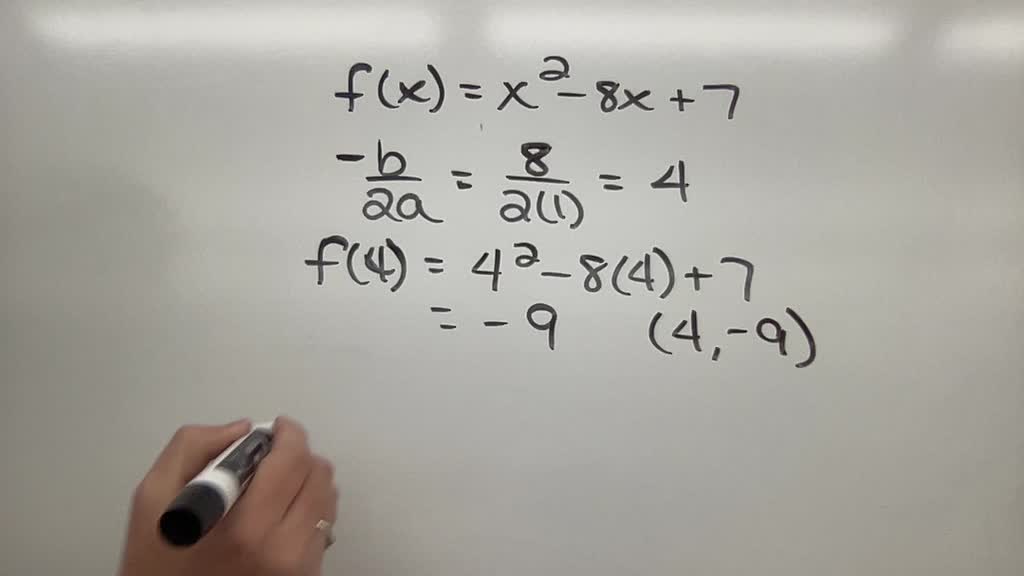 f(x) = x² - 8x + 7
-b/2a = 8/2(1) = 4
f(4) = 4² - 8(4) + 7
= -9 (4, -9)